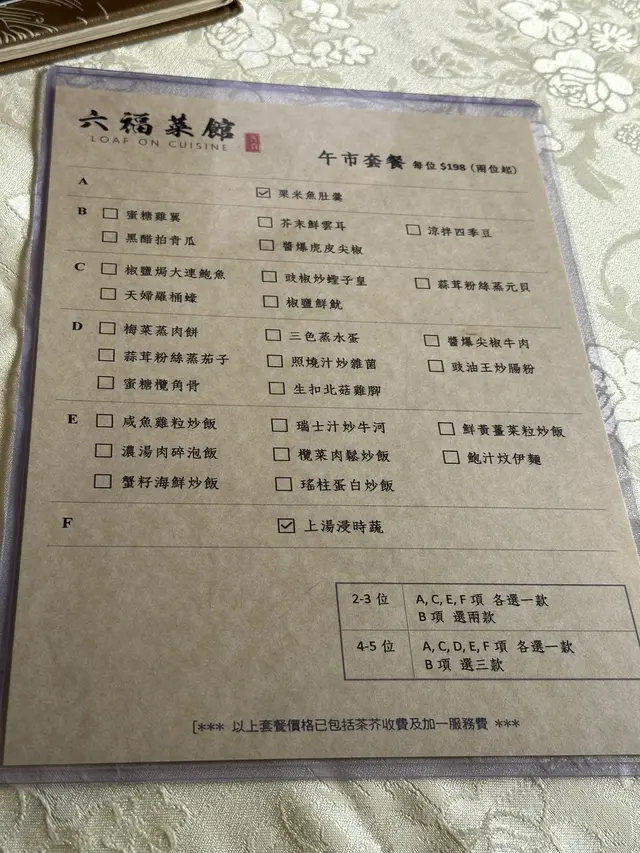 六福菜館
LOAF ON CUISINE
午市套餐 每位 $198 (兩位起)
A ☑ 粟米魚肚羹
B ☐ 蜜糖雞翼 ☐ 芥末鮮雲耳 ☐ 涼拌四季豆
☐ 黑醋拍青瓜 ☐ 醬爆虎皮尖椒
C ☐ 椒鹽焗大連鮑魚 ☐ 豉椒炒蟶子皇 ☐ 蒜茸粉絲蒸元貝
☐ 天婦羅桶蠔 ☐ 椒鹽鮮魷
D ☐ 梅菜蒸肉餅 ☐ 三色蒸水蛋 ☐ 醬爆尖椒牛肉
☐ 蒜茸粉絲蒸茄子 ☐ 照燒汁炒雜菌 ☐ 豉油王炒腸粉
☐ 蜜糖欖角骨 ☐ 生扣北菇雞腳
E ☐ 咸魚雞粒炒飯 ☐ 瑞士汁炒牛河 ☐ 鮮黃薑菜粒炒飯
☐ 濃湯肉碎泡飯 ☐ 欖菜肉鬆炒飯 ☐ 鮑汁炆伊麵
☐ 蟹籽海鮮炒飯 ☐ 瑤柱蛋白炒飯
F ☑ 上湯浸時蔬
2-3 位 A, C, E, F 項 各選一款
B 項 選兩款
4-5 位 A, C, D, E, F 項 各選一款
B 項 選三款
[*** 以上套餐價格已包括茶芥收費及加一服務費 ***